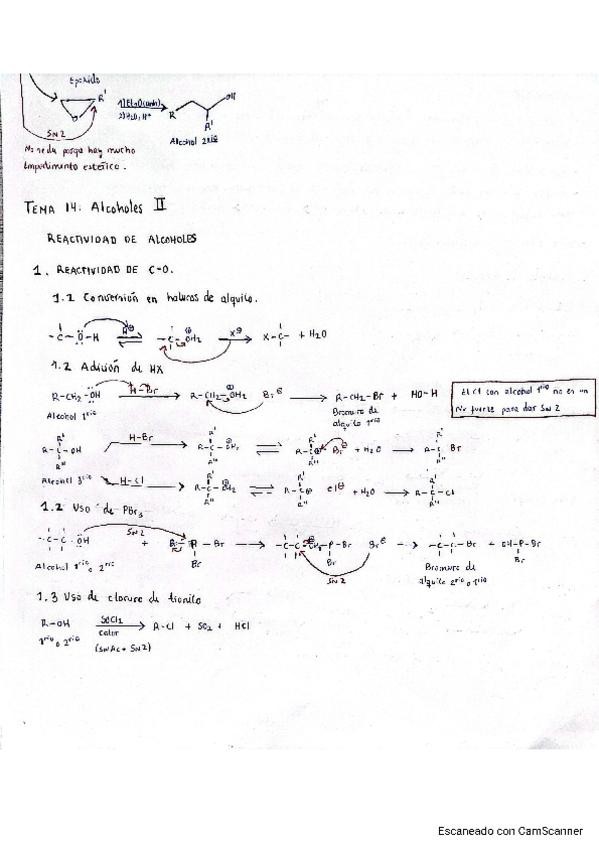 Epóxido
R'
1) Et2O (anh)
2) H2O, H+
R
OH
R'
SN2
Alcohol 2rio
No se da porque hay mucho
impedimento estérico.
TEMA 14: Alcoholes II
REACTIVIDAD DE ALCOHOLES
1. REACTIVIDAD DE C-O.
1.1 Conversión en haluros de alquilo.
-C-Ö-H H⊕ ⇌ -C-OH2 X⊖ → X-C- + H2O
1.2 Adición de HX
R-CH2-ÖH H-Br → R-CH2-OH2 Br⊖ → R-CH2-Br + HO-H
Alcohol 1rio
Bromuro de
alquilo 1rio
El Cl con alcohol 1rio no es un
Nu fuerte para dar SN2
R-C-OH H-Br → R-C-OH2 ⇌ R-C⊕ Br⊖ + H2O → R-C-Br
Alcohol 3rio H-Cl → R-C-OH2 ⇌ R-C⊕ Cl⊖ + H2O → R-C-Cl
1.2 Uso de PBr3
-C-C-ÖH SN2 + Br-P-Br → -C-C-OH-P-Br Br⊖ → -C-C-Br + OH-P-Br
Br
Alcohol 1rio o 2rio
SN2
Bromuro de
alquilo 2rio o 1rio
1.3 Uso de cloruro de tionilo
R-OH SOCl2 → R-Cl + SO2 + HCl
1rio o 2rio
calor
(SNAc + SN2)
Escaneado con CamScanner